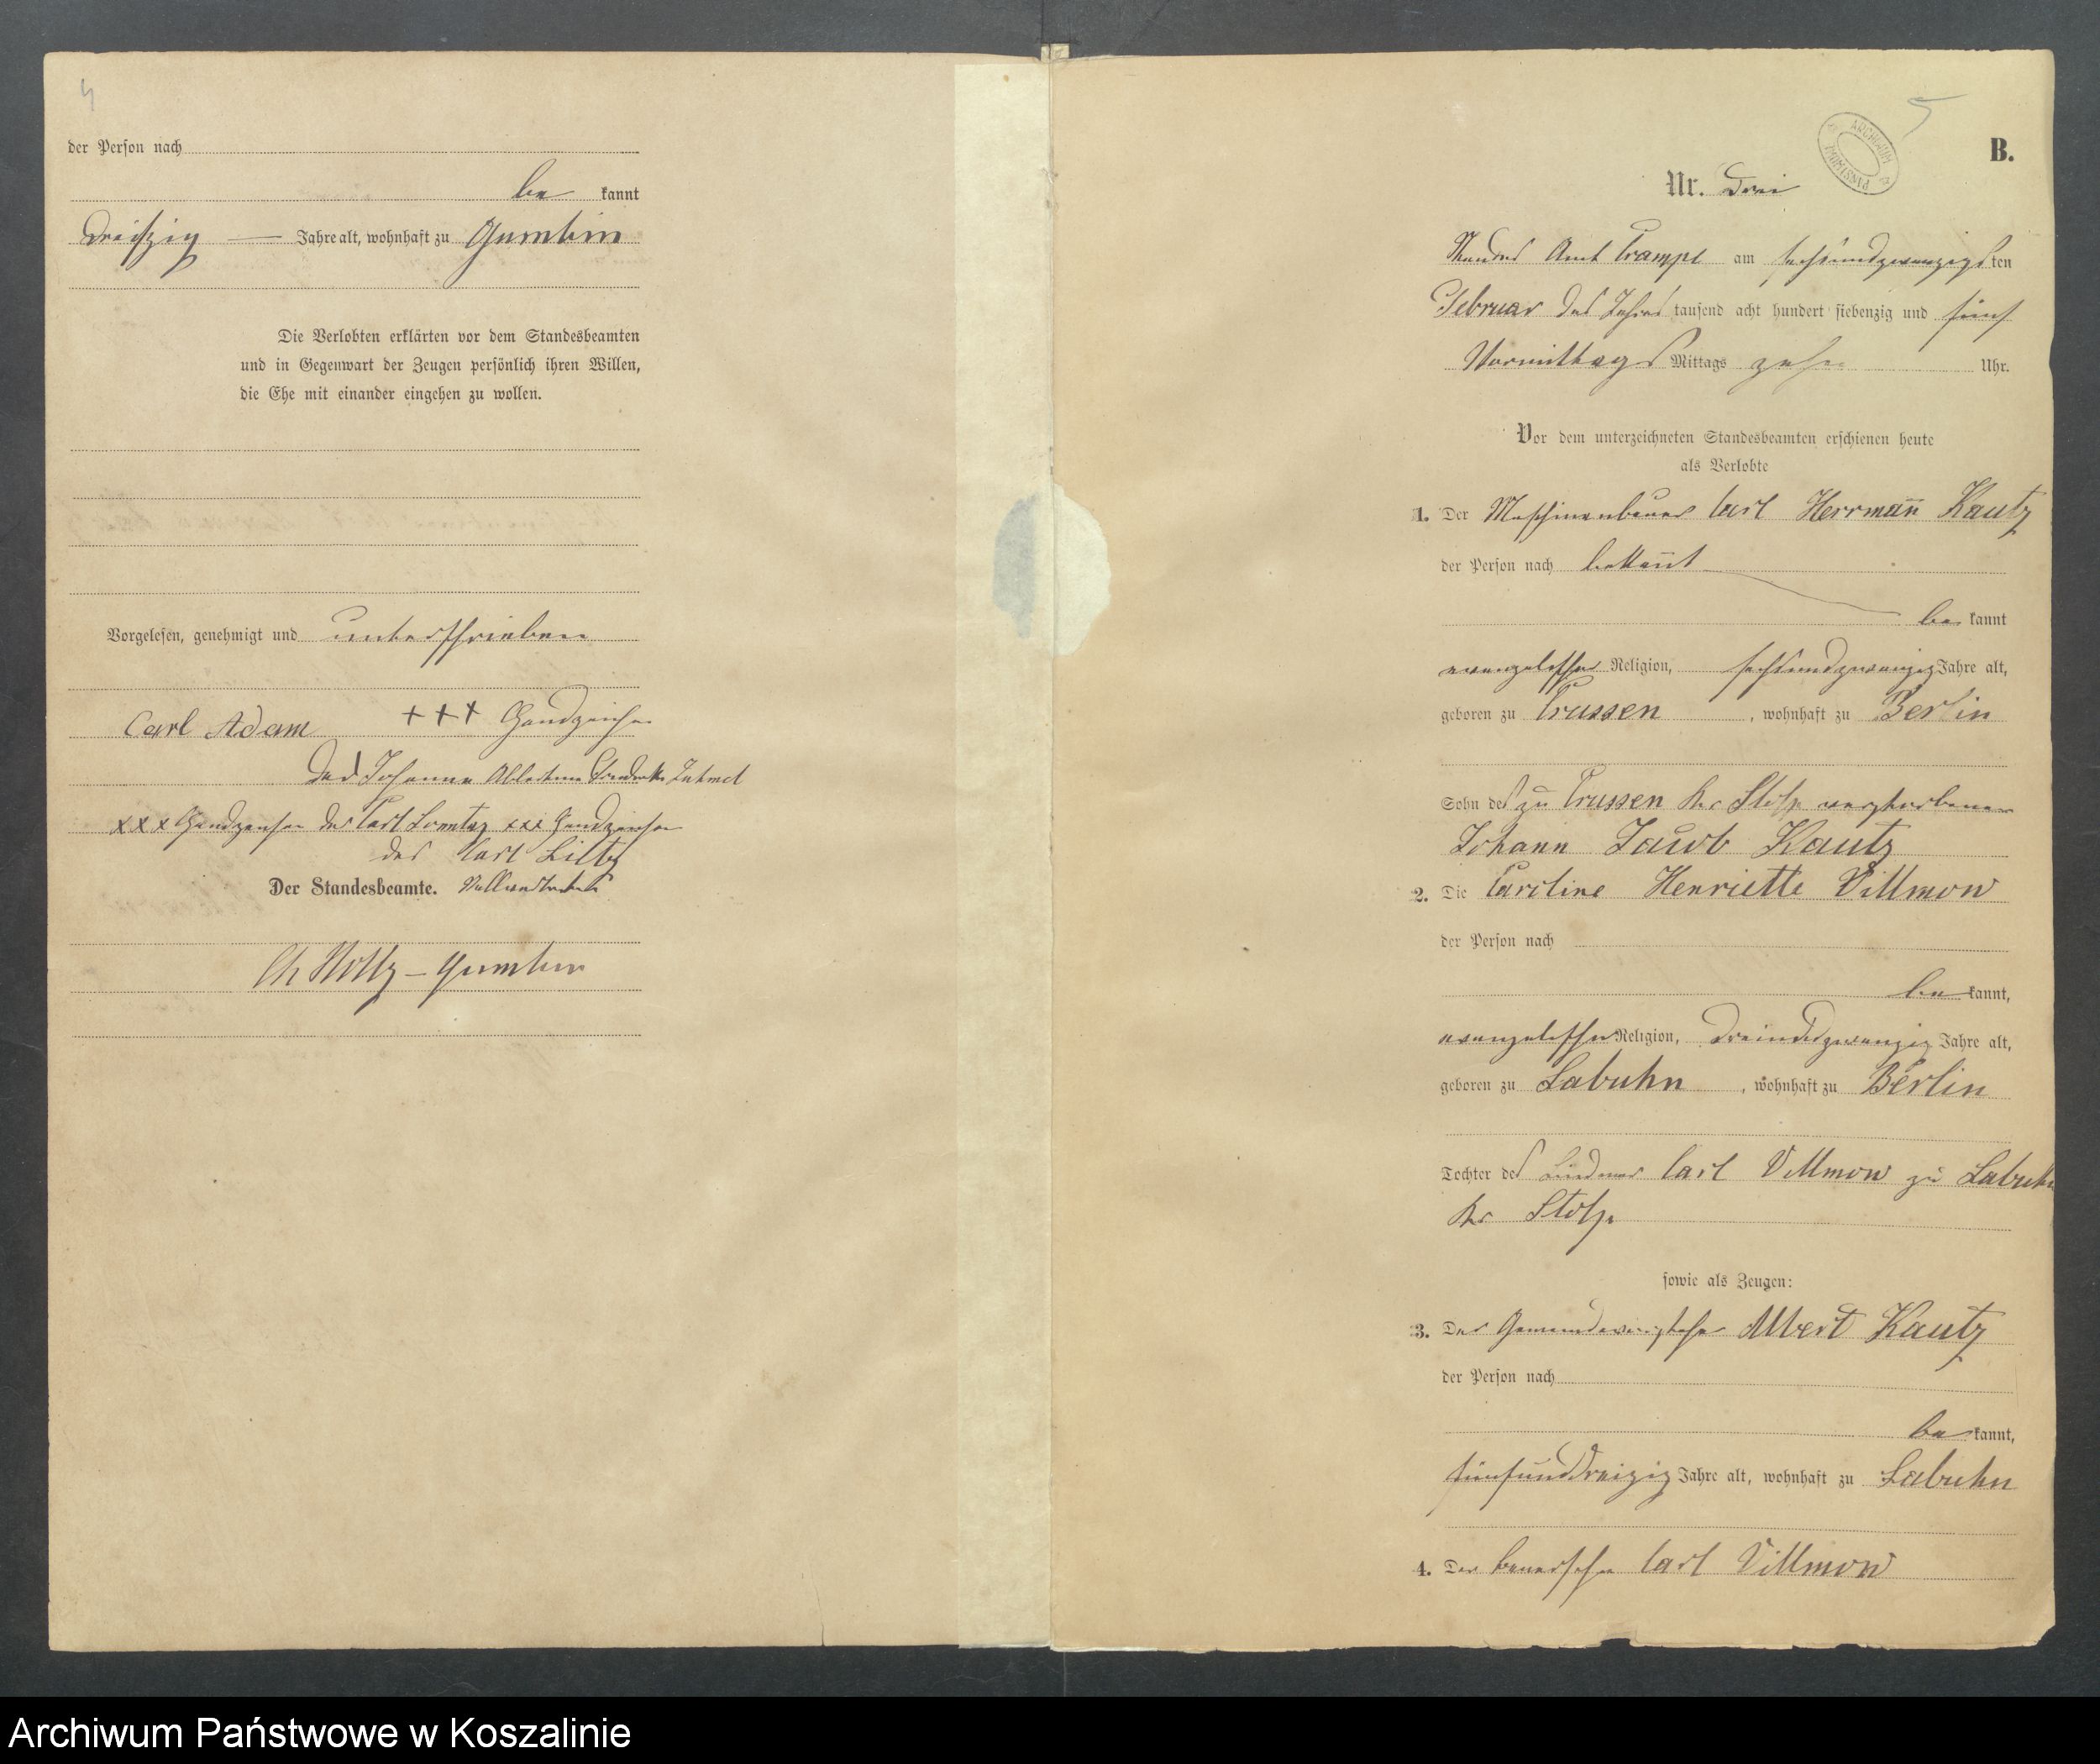 4
der Person nach
be kannt
dreißig — Jahre alt, wohnhaft zu Gumbin
Die Verlobten erklärten vor dem Standesbeamten
und in Gegenwart der Zeugen persönlich ihren Willen,
die Ehe mit einander eingehen zu wollen.
Vorgelesen, genehmigt und unterschrieben
Carl Adam +++ Handzeichen
der Johanne Albertine
xxx Handzeichen des Carl xxx Handzeichen
des Carl
Der Standesbeamte.
Gumbin
5
ARCHIWUM PAŃSTWOWE
B.
Nr. Drei
Standes Amt Crampe am sechsundzwanzigsten
Februar des Jahres tausend acht hundert siebenzig und fünf
Vormittags Mittags zehn Uhr.
Vor dem unterzeichneten Standesbeamten erschienen heute
als Verlobte
1. Der Maschinenbauer Carl Herrmañ Kautz
der Person nach bekañt
be kannt
evangelischer Religion, sechsundzwanzig Jahre alt,
geboren zu Crussen, wohnhaft zu Berlin
Sohn des zu Crussen Kr Stolp verstorbenen
Johann Jacob Kautz
2. Die Caroline Henriette Villmow
der Person nach
be kannt,
evangelischer Religion, dreiundzwanzig Jahre alt,
geboren zu Labuhn, wohnhaft zu Berlin
Tochter des Carl Villmow zu Labuhn
Kr Stolp
sowie als Zeugen:
3. Der Gemeindevorsteher Albert Kautz
der Person nach
be kannt,
fünfunddreizig Jahre alt, wohnhaft zu Labuhn
4. Der Bauersohn Carl Villmow
Archiwum Państwowe w Koszalinie